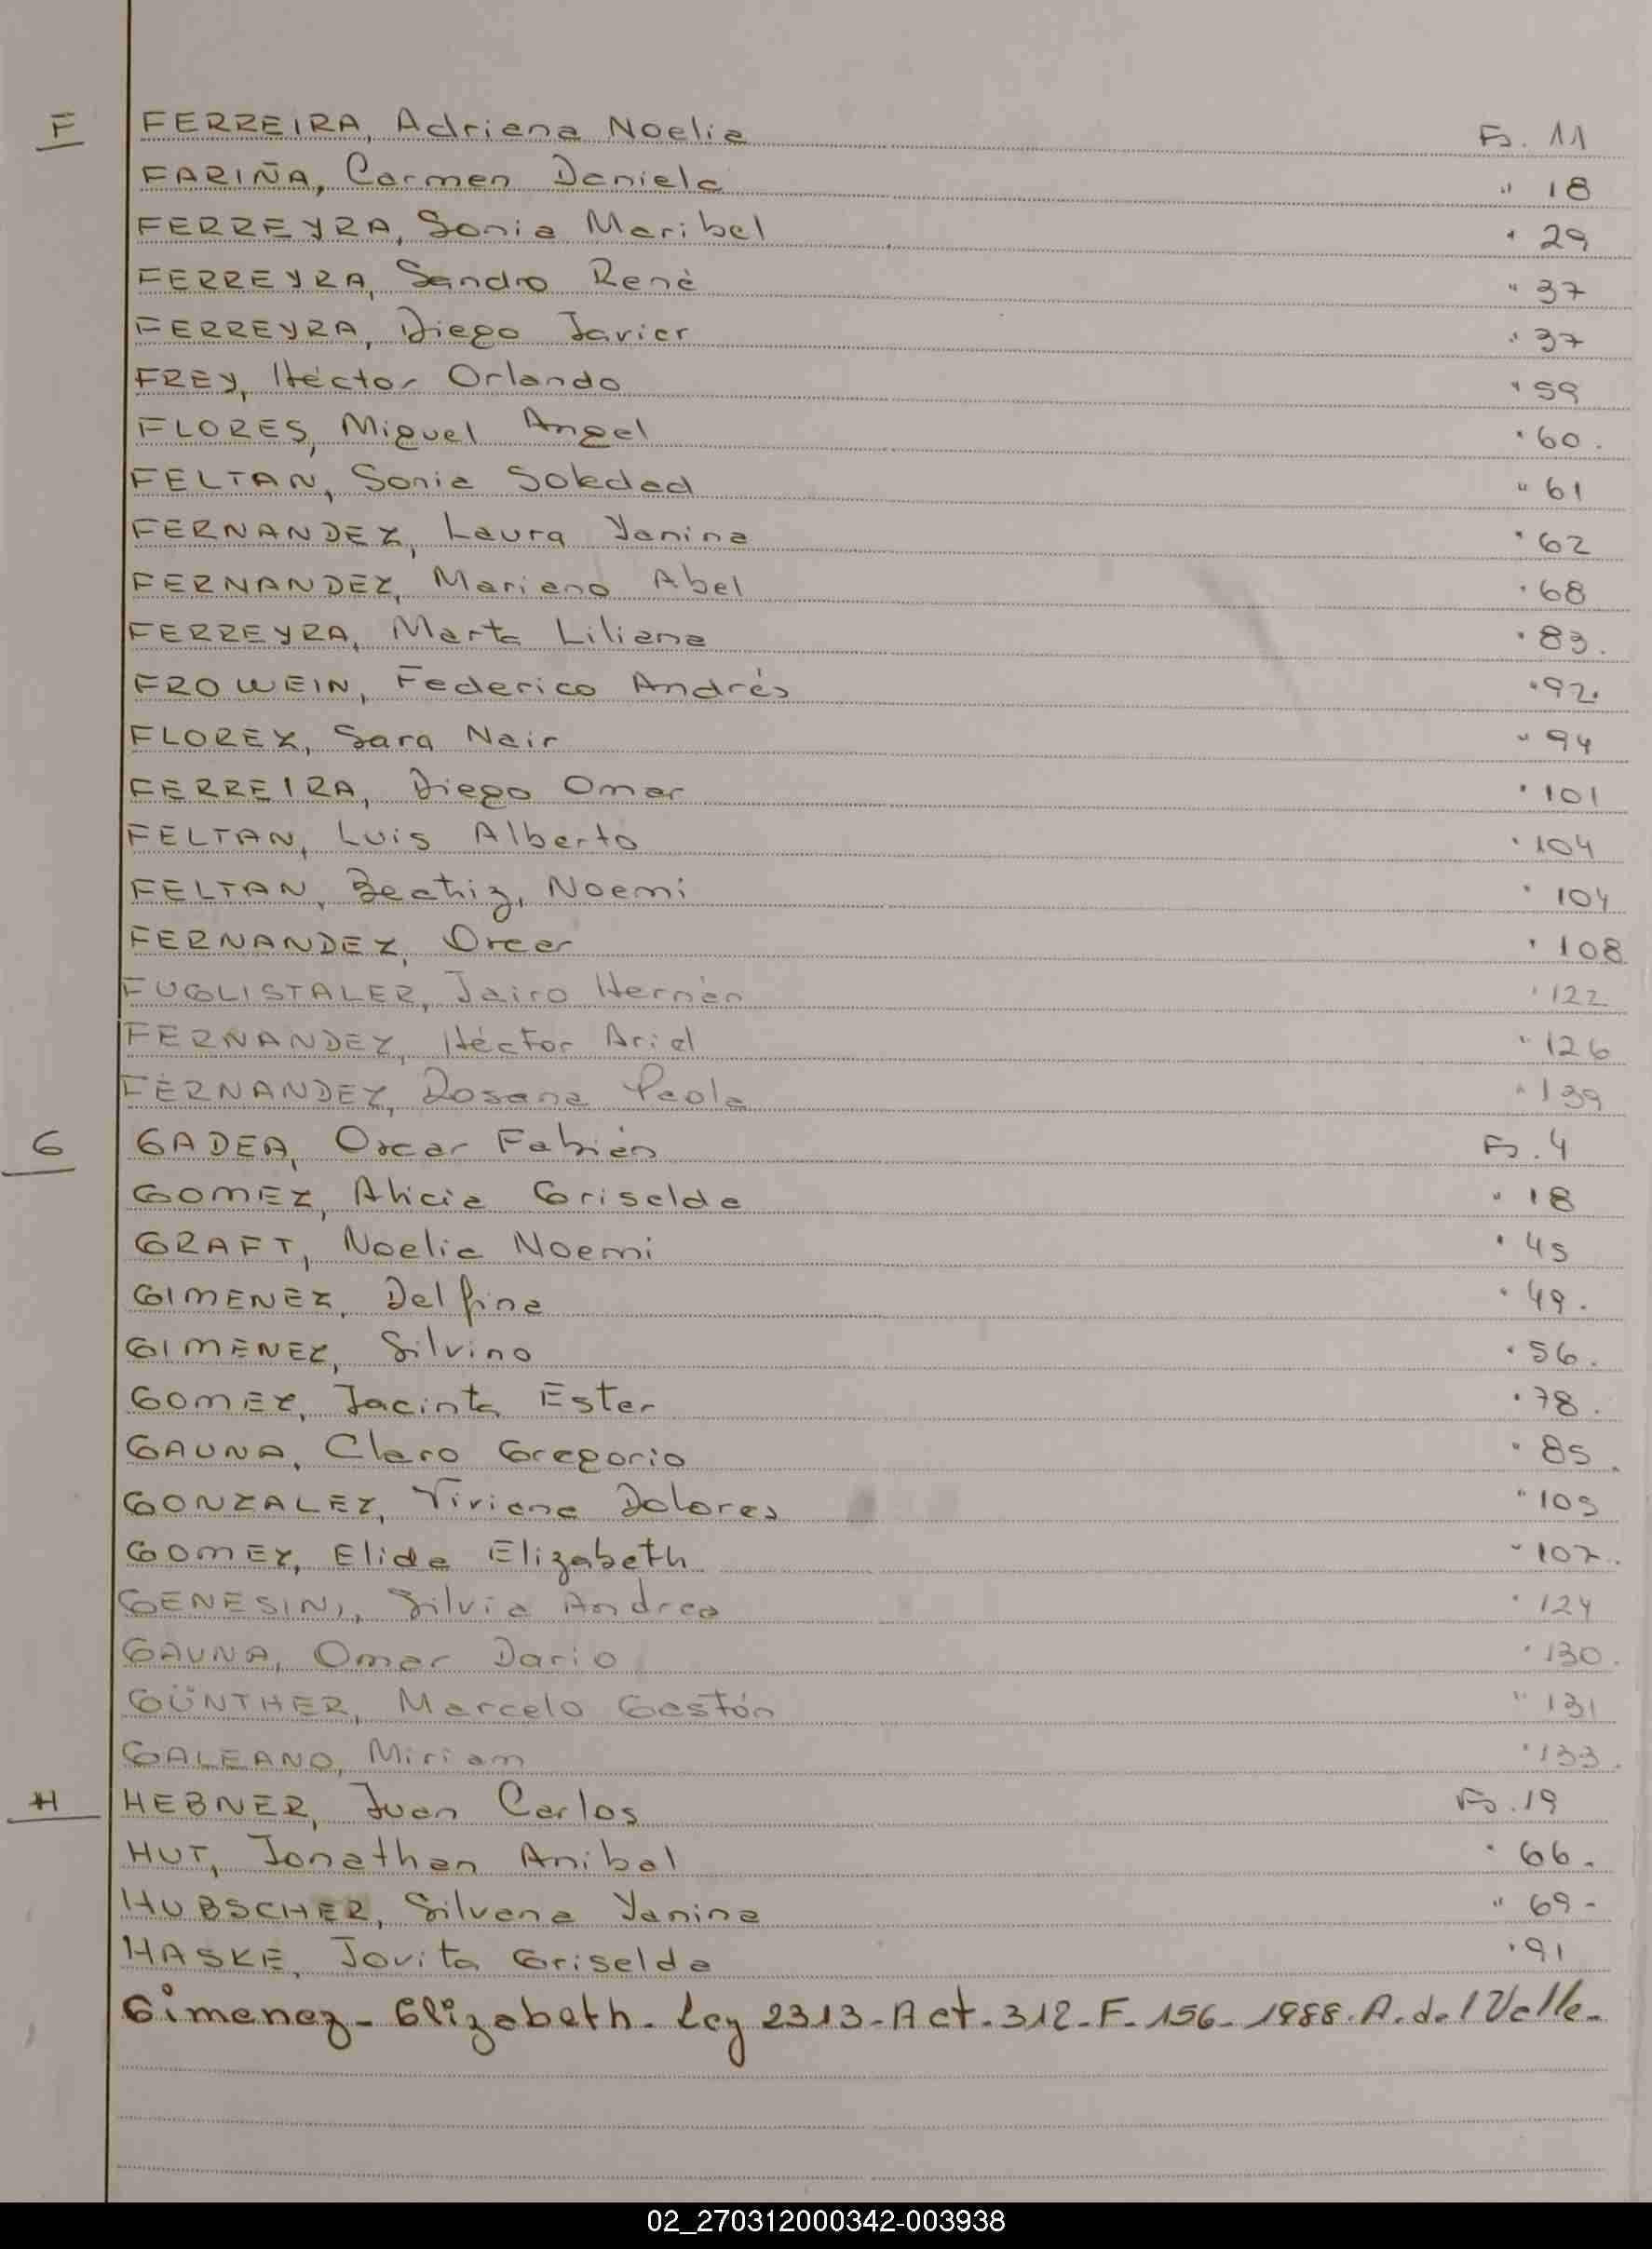 F FERREIRA, Adriana Noelia Fs. 11
FARIÑA, Carmen Daniela " 18
FERREYRA, Sonia Maribel " 29
FERREYRA, Sandro René " 37
FERREYRA, Diego Javier " 37
FREY, Héctor Orlando " 59
FLORES, Miguel Angel " 60.
FELTAN, Sonia Soledad " 61
FERNANDEZ, Laura Yanina " 62
FERNANDEZ, Mariano Abel " 68
FERREYRA, Marta Liliana " 83.
FROWEIN, Federico Andrés " 92.
FLOREZ, Sara Nair " 94
FERREIRA, Diego Omar " 101
FELTAN, Luis Alberto " 104
FELTAN, Beatriz, Noemi " 104
FERNANDEZ, Oscar " 108
FUGLISTALER, Jairo Hernán " 122
FERNANDEZ, Héctor Ariel " 126
FERNANDEZ, Rosana Paola " 139
G GADEA, Oscar Fabián Fs. 4
GOMEZ, Alicia Griselda " 18
GRAFT, Noelia Noemi " 45
GIMENEZ, Delfina " 49.
GIMENEZ, Silvino " 56.
GOMEZ, Jacinta Ester " 78.
GAUNA, Claro Gregorio " 85.
GONZALEZ, Viviana Dolores " 105
GOMEZ, Elida Elizabeth " 107.
GENESINI, Silvia Andrea " 124
GAUNA, Omar Dario " 130.
GÜNTHER, Marcelo Gastón " 131
GALEANO, Miriam " 133.
H HEBNER, Juan Carlos Fs. 19
HUT, Jonathan Anibal " 66.
HUBSCHER, Silvana Yanina " 69-
HASKE, Jovita Griselda " 91
Gimenez - Elizabeth - Ley 2313 - Act. 312 - F. 156 - 1988. A. del Valle -
02_270312000342-003938